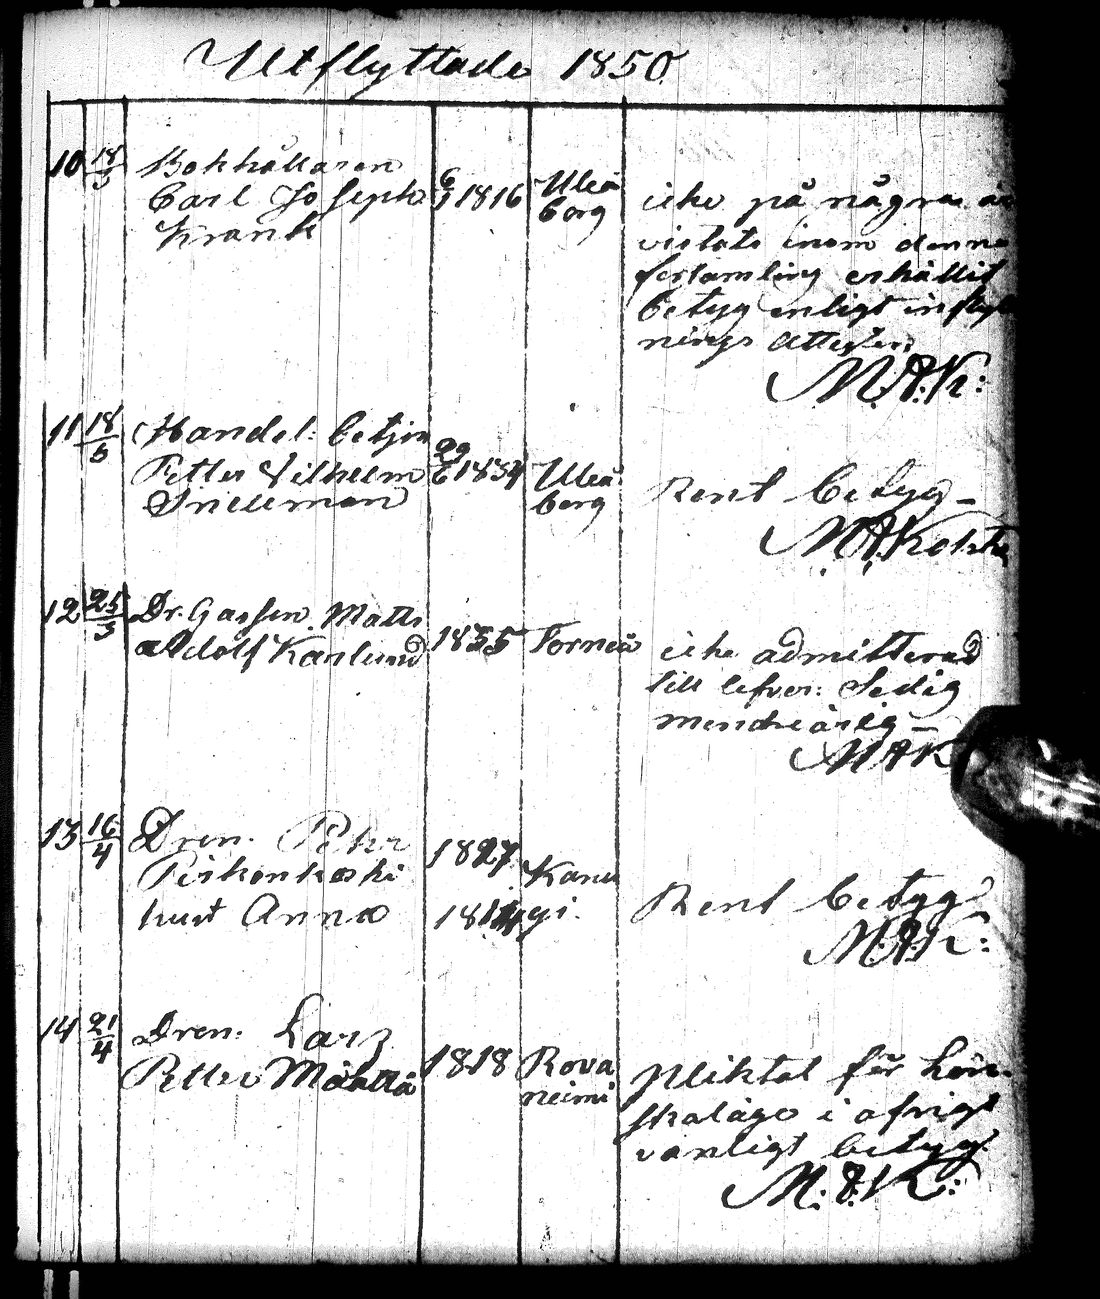 Utflyttade 1850
10 18/3 Bokhållaren
Carl Joseph
Frank
6/1 1816
Uleå
borg
icke på några år
vistats inom denna
församling erhållit
betyg enligt inflytt
nings attesten
M.A.K:
11 18/3 Handel: betjen
Petter Vilhelm
Snellman
29/6 1834
Uleå
borg
Rent betyg
M.A.Kokko
12 25/3 Dr. Gossen Matts
Adolf Karlund
1835
Torneå
icke admitterad
till lefver: Ledig
mindreårig
M A K
13 16/4 Dren. Pehr
Piskonkoski
hust Anna
1827
18
Kane
gi.
Rent betyg
M.A.K:
14 21/4 Dren: Lars
Petter Määttä
1818
Rova
neimi
pliktat för
i öfrigt
vanligt betyg.
M.A.K: